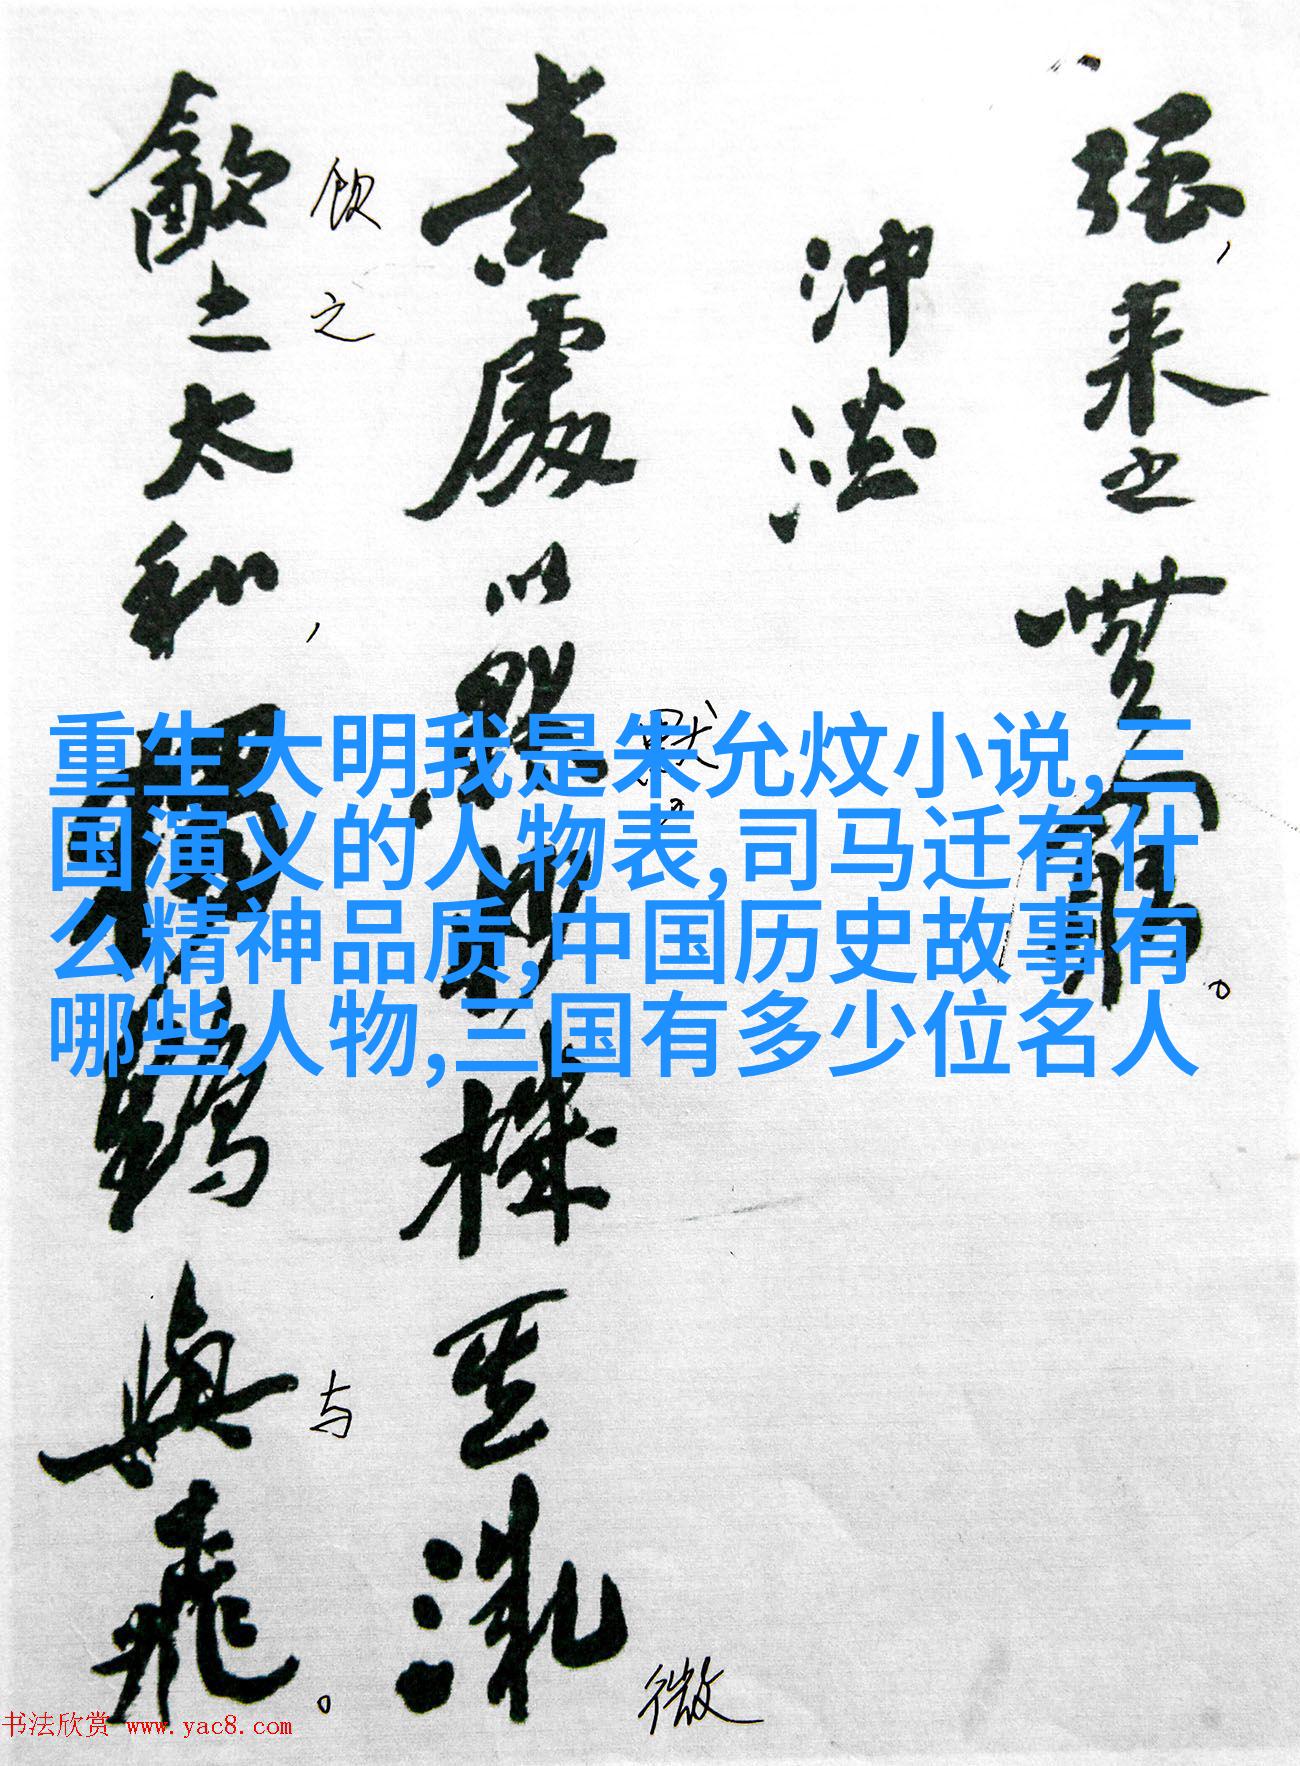 强，来之無窮。
沖淡
素處以默妙機其微
默。
微
飲之太和，獨鶴與飛。
饮之
与
重生大明我是朱允炆小说,三
国演义的人物表,司马迁有什
么精神品质,中国历史故事有
哪些人物,三国有多少位名人
书法欣赏 www.yac8.com